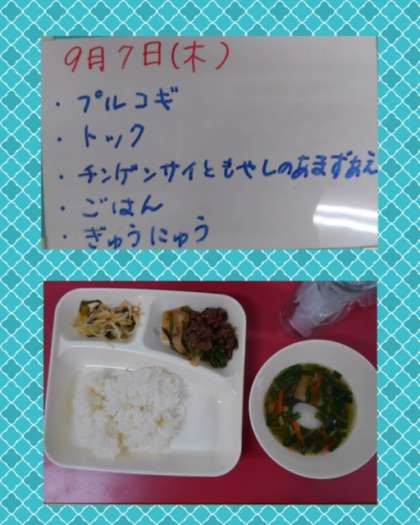 9月7日(木)
・プルコギ
・トック
・チンゲンサイともやしのあまずあえ
・ごはん
・ぎゅうにゅう